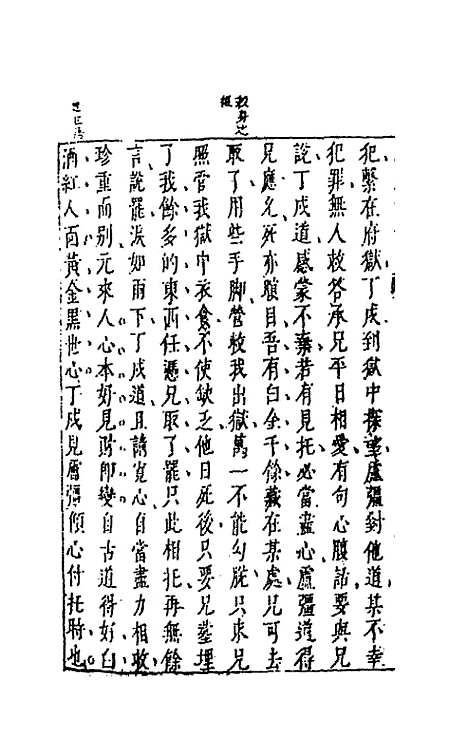 殺身之
犯繫在府獄丁戍到獄中探望盧疆對他道某不幸
犯罪無人救答承兄平日相愛有句心腹話要與兄
說丁戍道感蒙不棄若有見托必當盡心盧疆道得
兄應允死亦瞑目吾有白金千餘藏在某處兄可去
取了用些手脚營救我出獄萬一不能勾脫只求兄
照管我獄中衣食不使缺乏他日死後只要兄塟埋
了我餘多的東西任憑兄取了罷只此相托再無餘
言說罷淚如雨下丁戍道且請寬心自當盡力相救
珍重而別元來人心本好見財即變自古道得好白
酒紅人面黃金黑世心丁戍見盧疆傾心付托時也